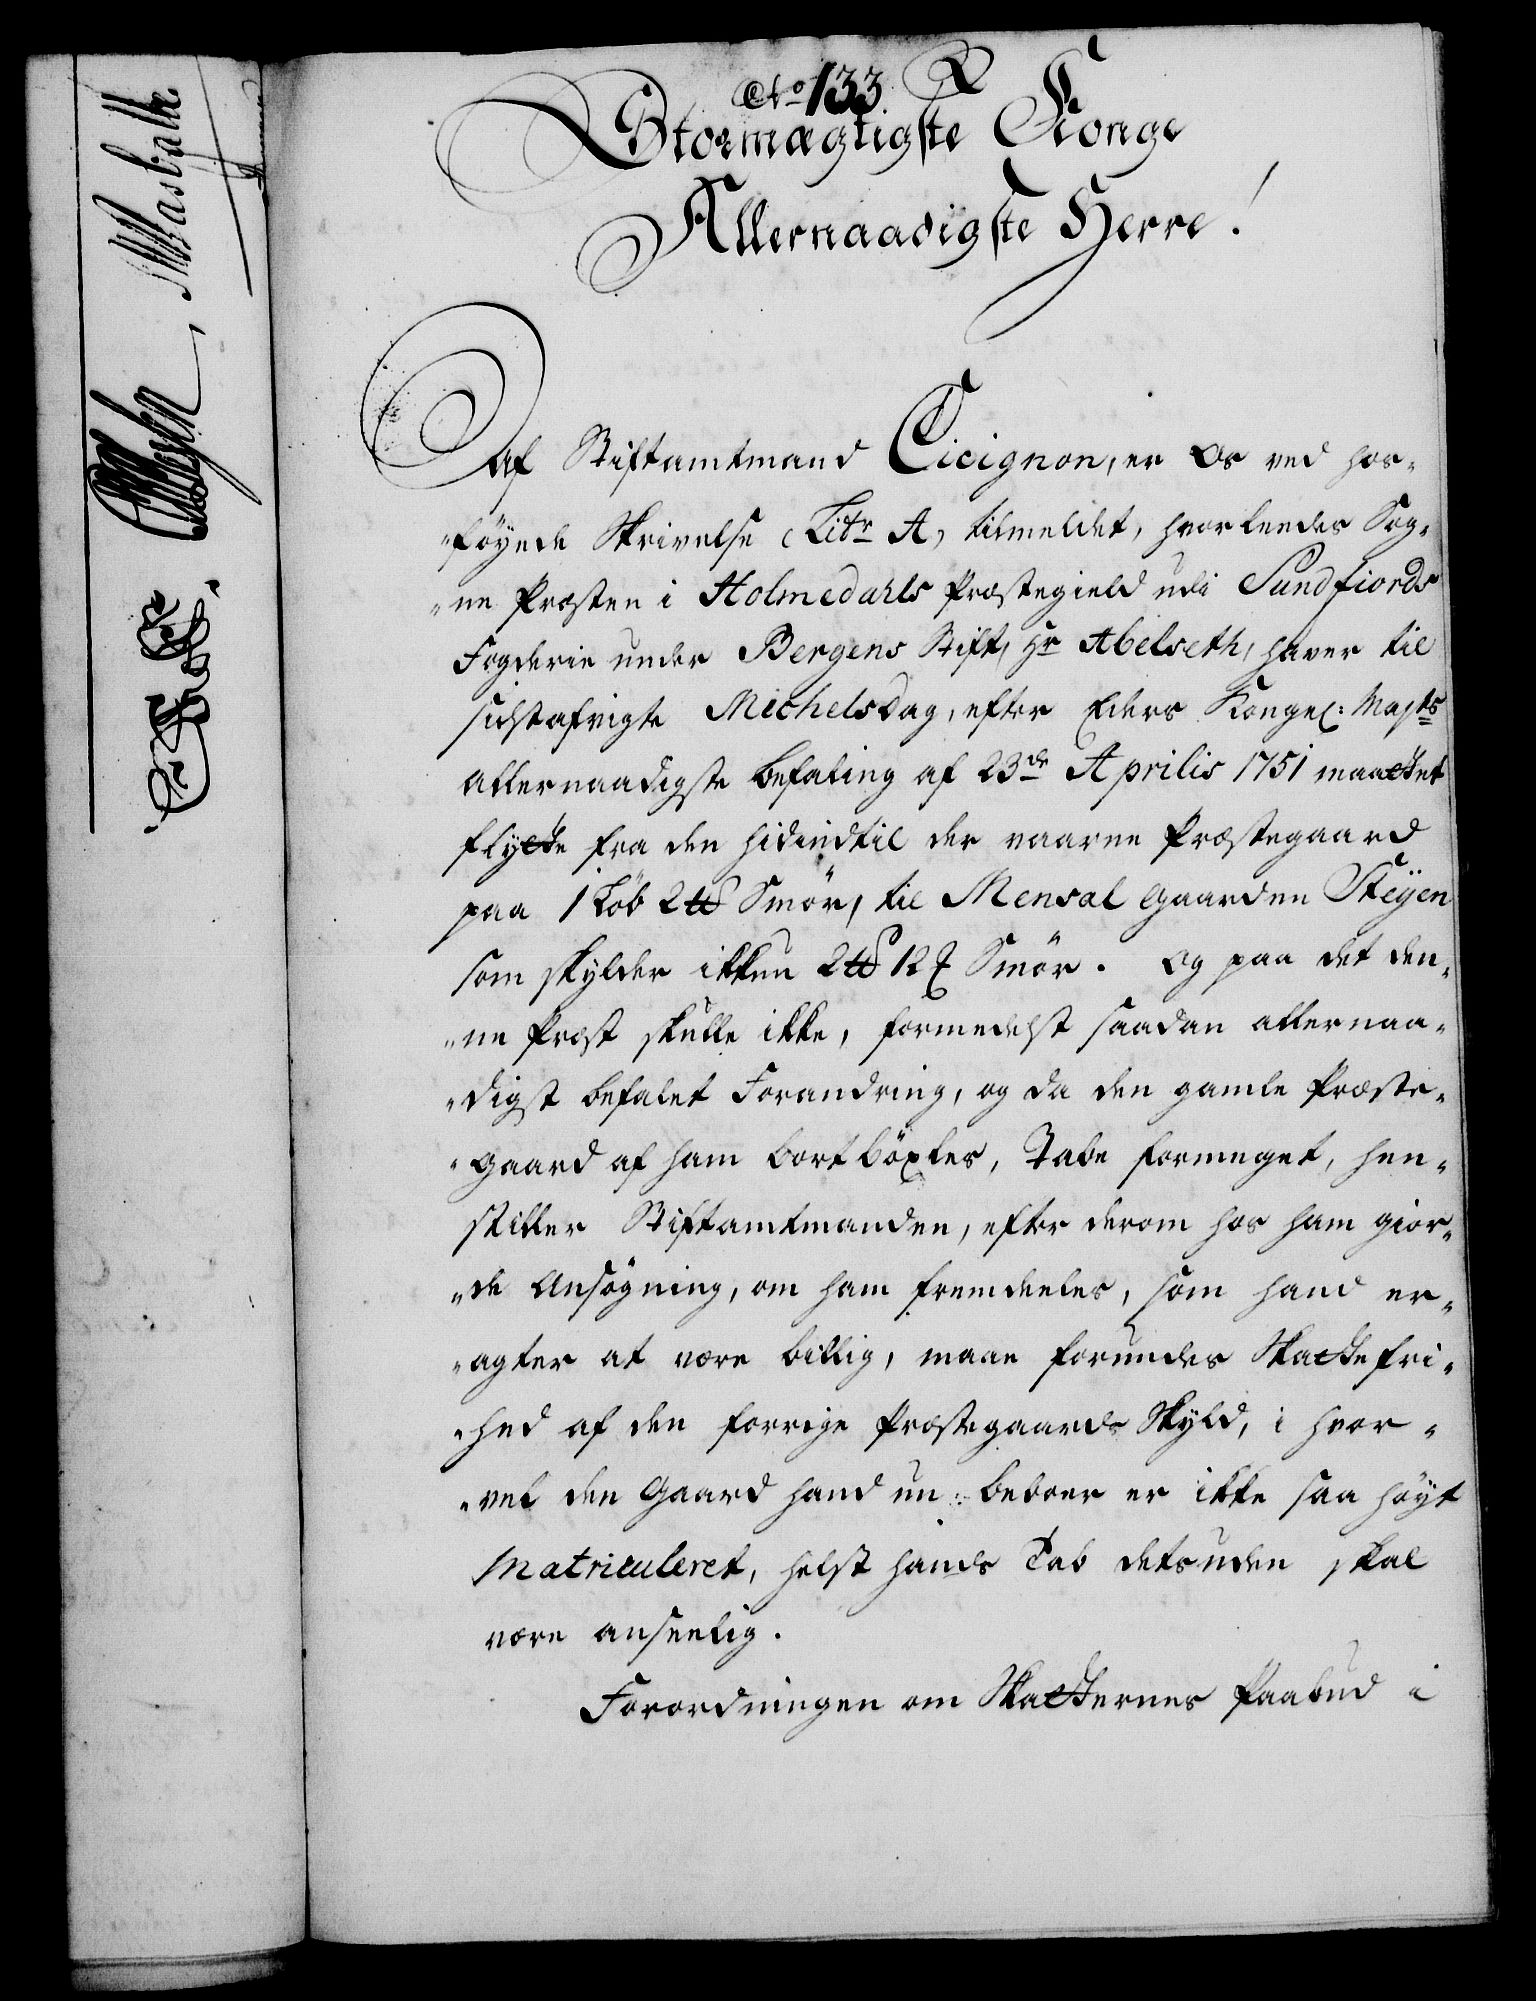 No 133.
Stormægtigste Konge
Allernaadigste Herre!
Af Stiftamtmand Cicignon, er Os ved hos-
føyede Skrivelse Litr A, tilmeldet, hvorleedes Sog-
ne Præsten i Holmedahls Præstegield udi Sundfiords
Fogderie under Bergens Stift, Hr Abelseth, haver til
sidstafvigte Michelsdag, efter Eders Kongel: Mayts
allernaadigste Befaling af 23de Aprilis 1751 maattet
flytte fra den hidindtil der værende Præstegaard
paa 1 Løb 2 ℔ Smör, til Mensal Gaarden Steyen
som skylder ikkun 2 ℔ 12 Smör. Og paa det den-
ne Præst skulle ikke, formedelst saadan allernaa-
digst befalet Forandring, og da den gamle Præste-
gaard af ham bortböxles, Tabe formeget, hen-
stiller Stiftamtmanden, efter derom hos ham gior-
de Ansögning, om ham fremdeeles, som hand er-
agter at være billig, maae forundes Skattefri-
hed af den forrige Præstegaards Skyld, i hvor-
vel den Gaard hand nu beboer er ikke saa höyt
Matriculeret, helst hands Tab detsuden skal
være anseelig.
Forordningen om Skatternes Paabud i